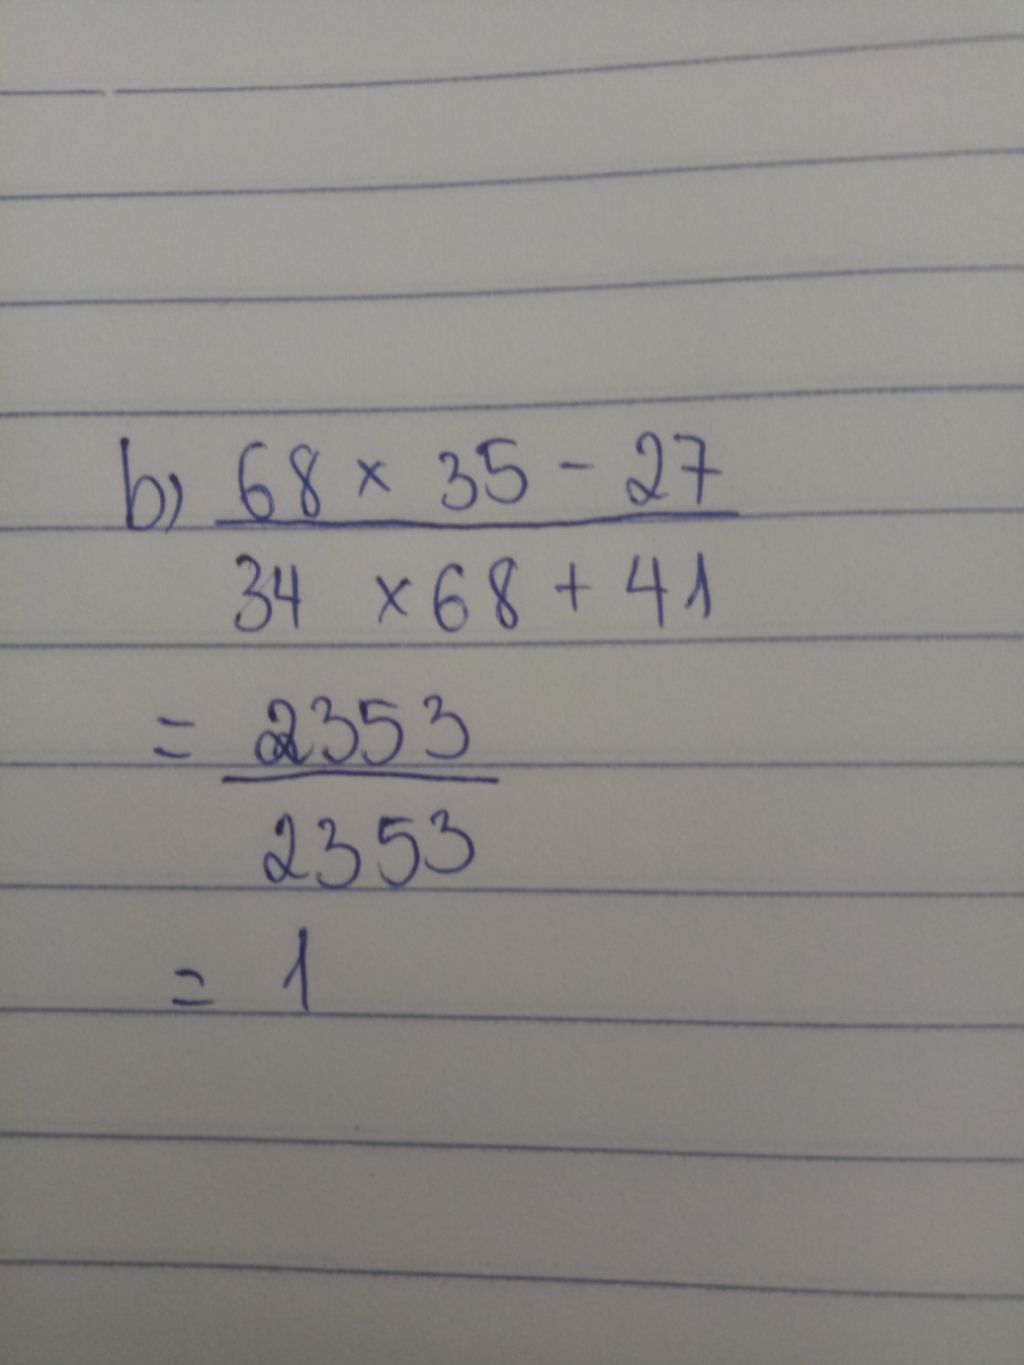 b) 68 × 35 - 27
34 × 68 + 41
= 2353
2353
= 1